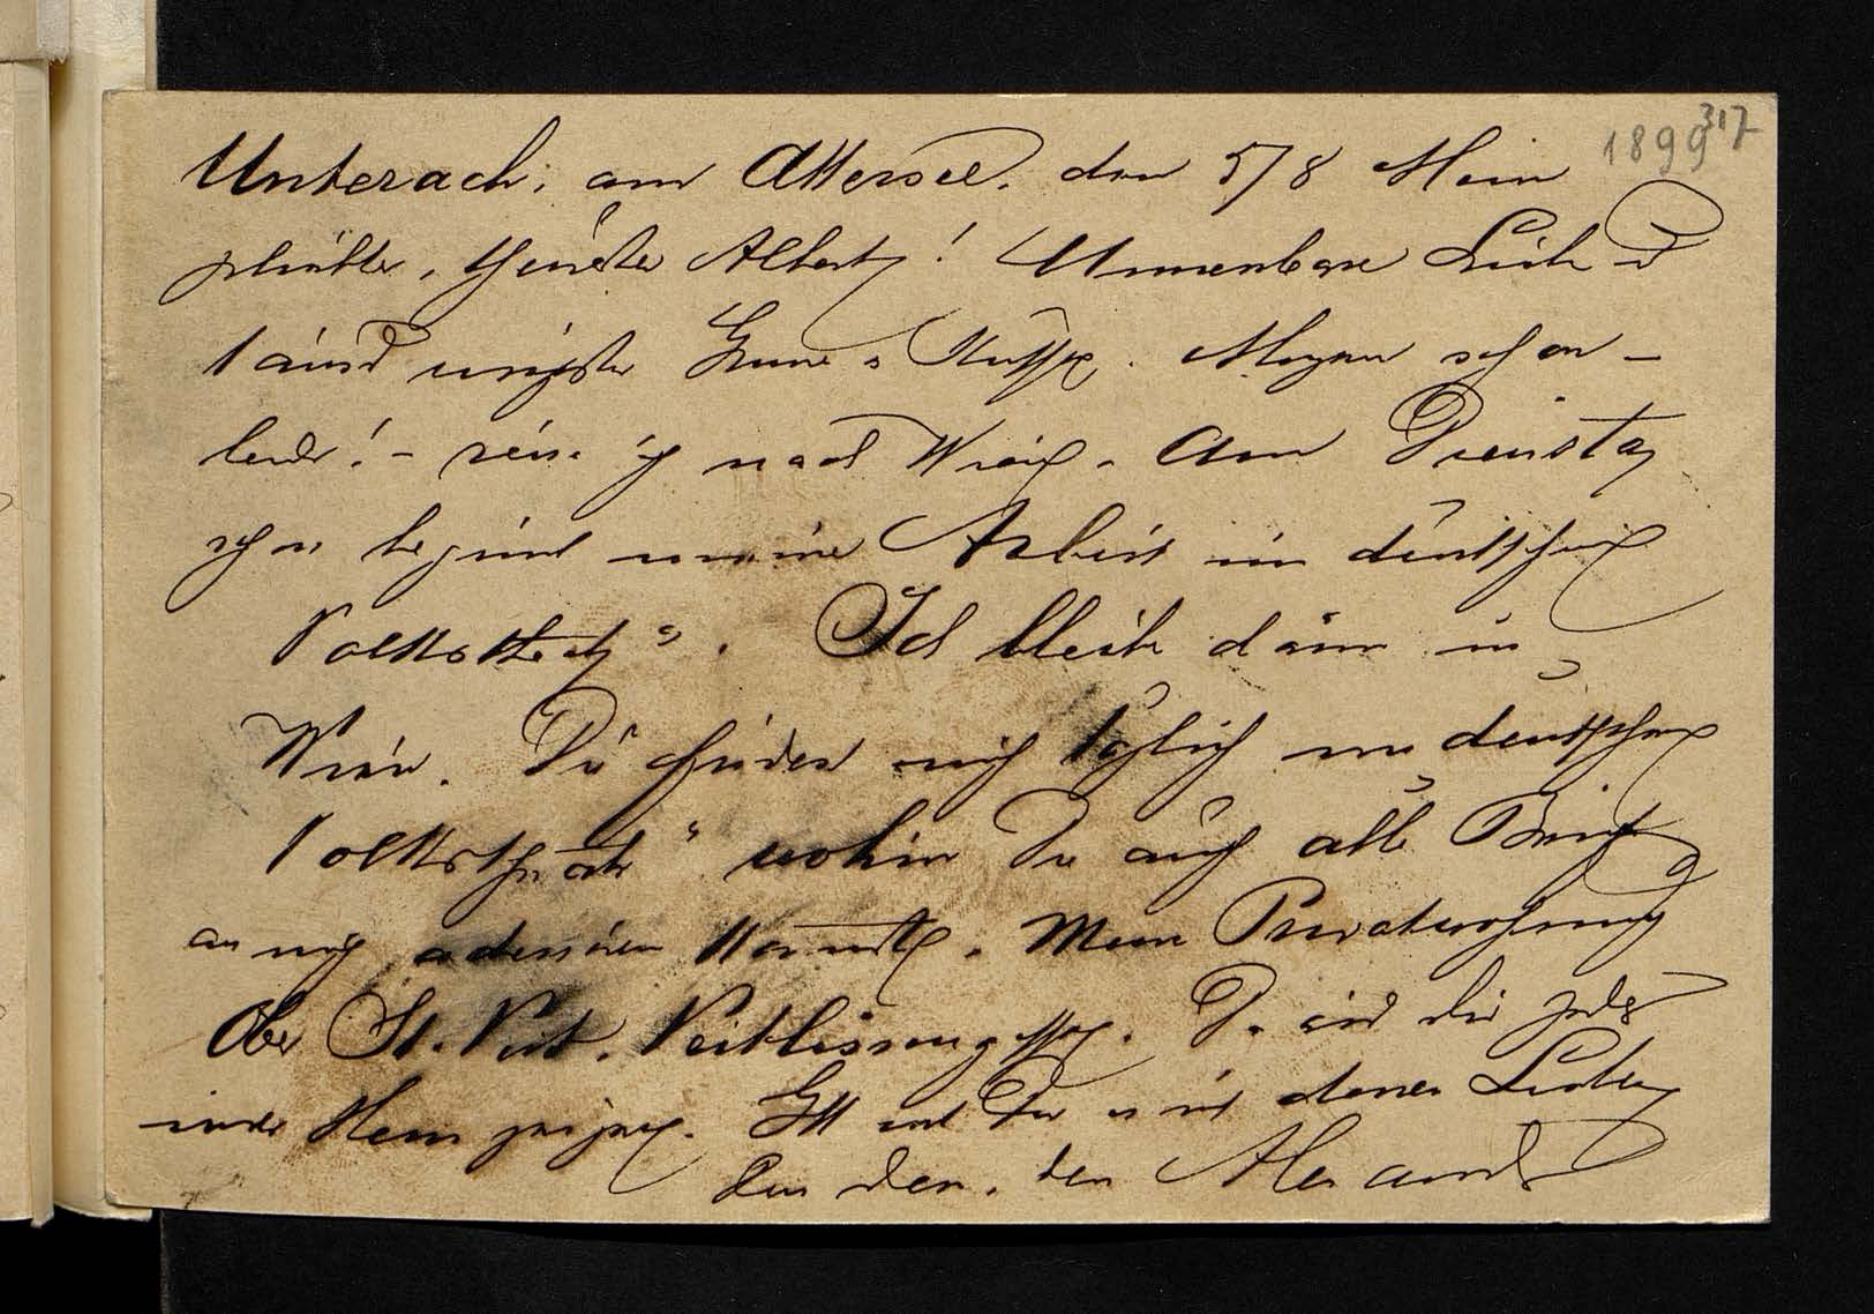 317
1899
Unterach, am Attersee. den 5/8 Mein
geliebter, theurster Albert! Unnennbare Liebe u
tausend innigste Grüsse u Küsse. Morgen schon –
leider! – reise ich nach Wien. Am Dienstag
schon beginnt meine Arbeit im „deutschen
Volkstheater“. Ich bleibe dann in
Wien. Du findest mich täglich im „deutschen
Volkstheater“ wohin Du auch alle Briefe
an mich adressiren könntest. Meine Privatwohnung
Ober St. Veit. Veitlissengasse. Da wird dir jedes
Kind mein zeigen. Gott mit Dir u mit deinen Lieben
Dein Dein, Dein Alexander